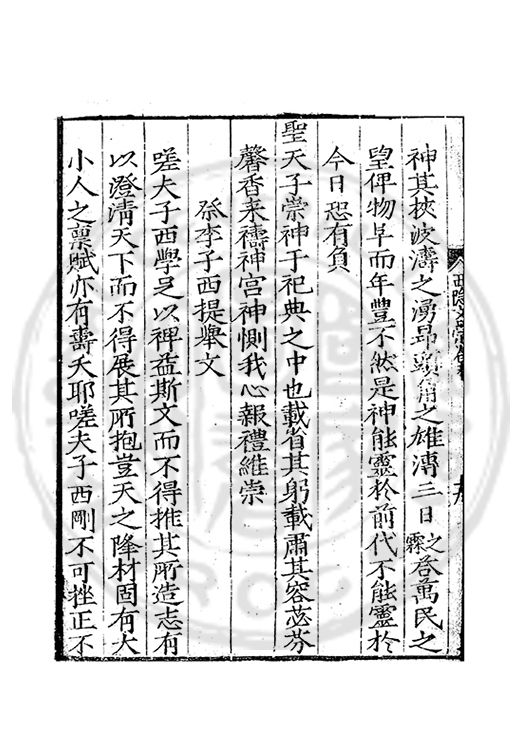 神其挾波濤之湧昻頭角之雄溥三日之霖答萬民之
望俾物阜而年豐不然是神能靈於前代不能靈於
今日恐有負
聖天子崇神于祀典之中也載省其躬載肅其容苾芬
馨香来禱神宫神惻我心報禮維崇
祭李子西提舉文
嗟夫子西學足以裨益斯文而不得推其所造志有
以澄清天下而不得展其所抱豈天之降材固有大
小人之禀賦亦有壽夭耶嗟夫子西剛不可挫正不